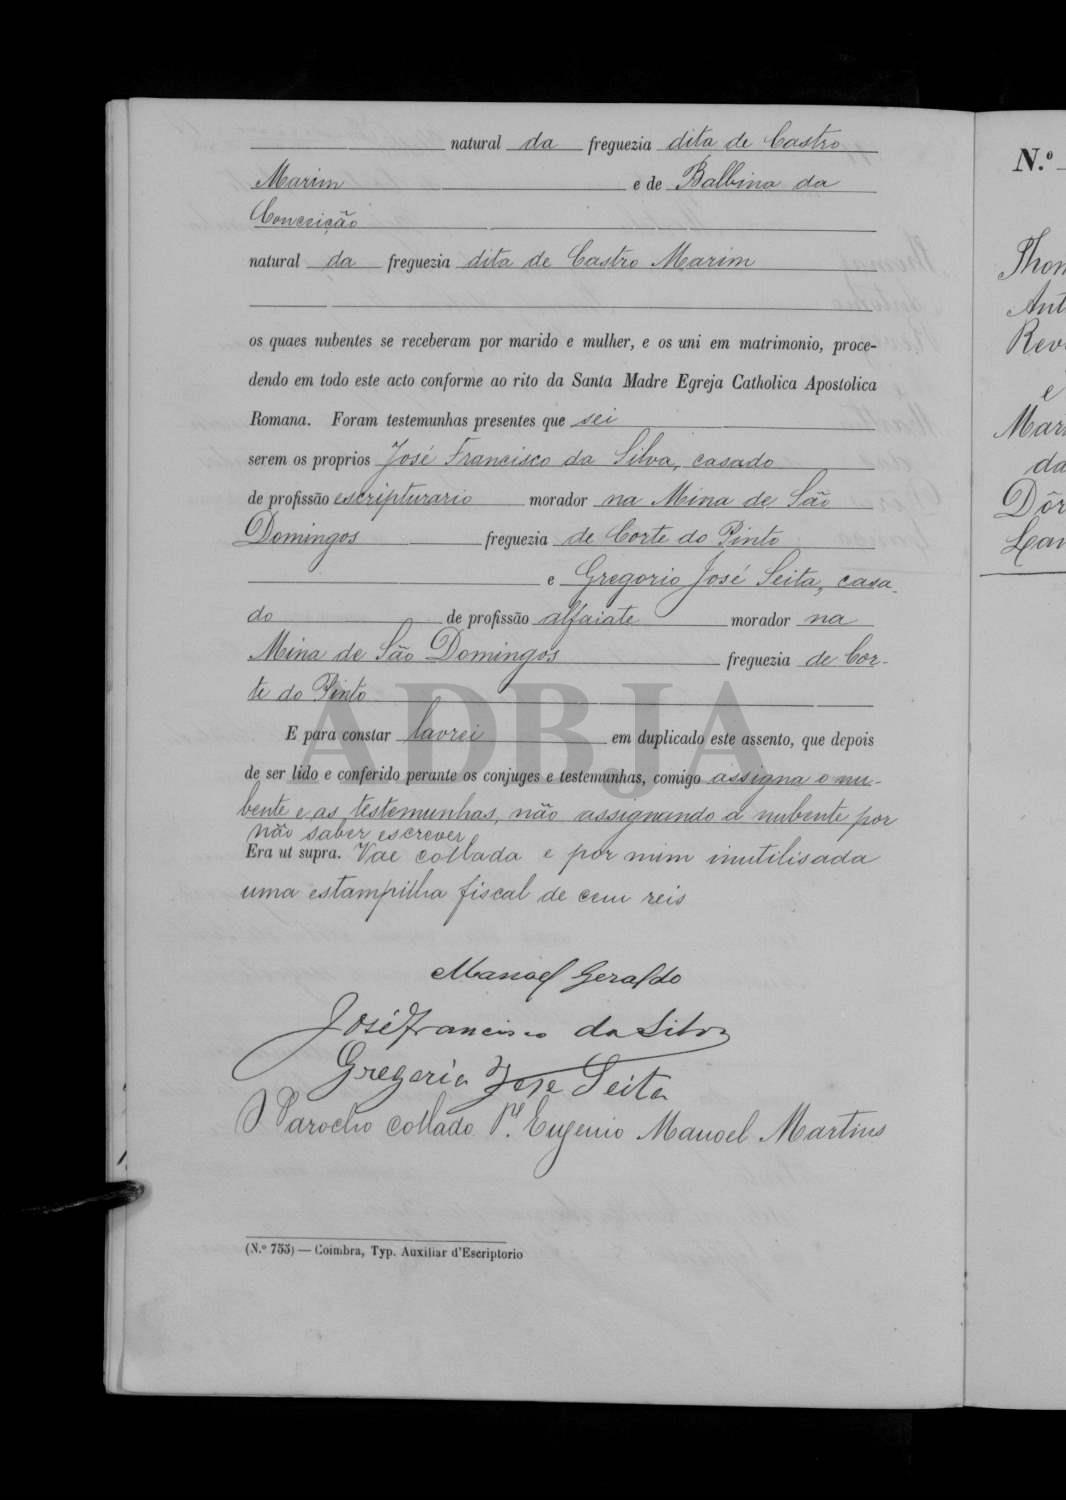 natural da freguezia dita de Castro
Marim e de Balbina da
Conceição
natural da freguezia dita de Castro Marim
os quaes nubentes se receberam por marido e mulher, e os uni em matrimonio, proce-
dendo em todo este acto conforme ao rito da Santa Madre Egreja Catholica Apostolica
Romana. Foram testemunhas presentes que sei
serem os proprios José Francisco da Silva, casado
de profissão escripturario morador na Mina de São
Domingos freguezia de Corte do Pinto
e Gregorio José Seita, casa-
do de profissão alfaiate morador na
Mina de São Domingos freguezia de Cor-
te do Pinto
E para constar lavrei em duplicado este assento, que depois
de ser lido e conferido perante os conjuges e testemunhas, comigo assigna o nu-
bente e as testemunhas, não assignando a nubente por
não saber escrever
Era ut supra. Vae collada e por mim inutilisada
uma estampilha fiscal de cem reis
Manoel Geraldo
José Francisco da Silva
Gregorio José Seita
O Parocho collado P.e Eugenio Manoel Martins
(N.º 755) — Coimbra, Typ. Auxiliar d'Escriptorio
ADBJA
N.º
Thom
Ant
Rev
e
Mar
da
Dôr